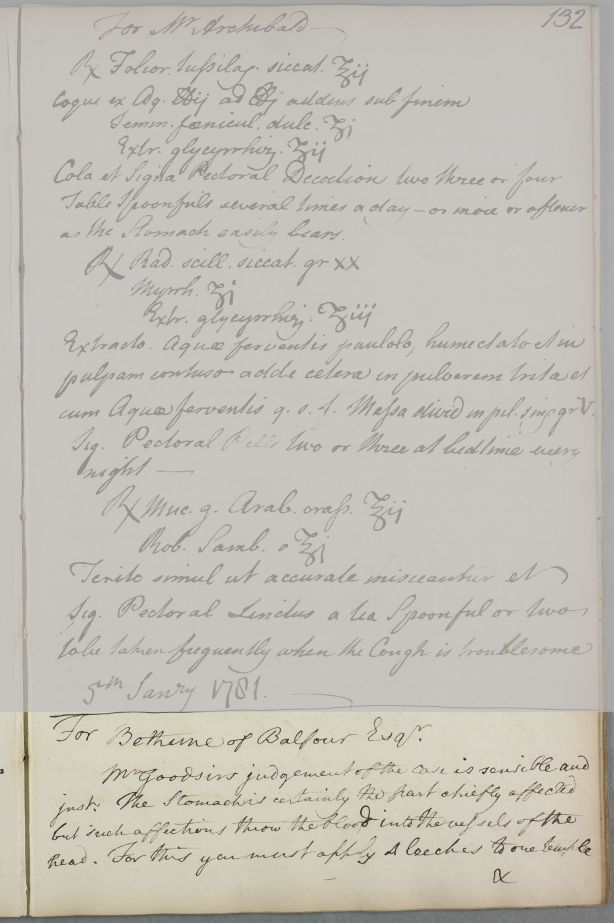 132
For Mr. Archibald
℞ Folior. tussilag. siccat. ʒij
coque ex Aq. ℔ij ad ℔j addens sub finem
Semin. fœnicul. dulc. ʒj
Extr. glycyrrhiz. ʒij
Cola et Signa Pectoral Decoction two three or four
Table Spoonfuls several times a day – or more or oftener
as the Stomach easily bears.
℞ Rad. scill. siccat. gr xx
Myrrh. ʒj
Extr. glycyrrhiz. ʒiij
Extracto. Aquæ ferventis paululo, humectato et in
pulpam contuso adde cetera in pulverem trita et
cum Aquæ ferventis q. s. f. Massa divid in pil. sing gr V.
Sig. Pectoral Pills two or three at bedtime every
night —
℞ Muc. g. Arab. crass. ʒij
Rob. Samb. ʒj
Terite simul ut accurate misceantur et
Sig. Pectoral Linctus a tea Spoonful or two
to be taken frequently when the Cough is troublesome
5th Janry 1781.
For Bethune of Balfour Esqr.
Mr Goodsirs judgement of the case is sensible and
just. The Stomach is certainly the part chiefly affected
but such affections throw the blood into the vessels of the
head. For this you must apply 4 leeches to one temple
&